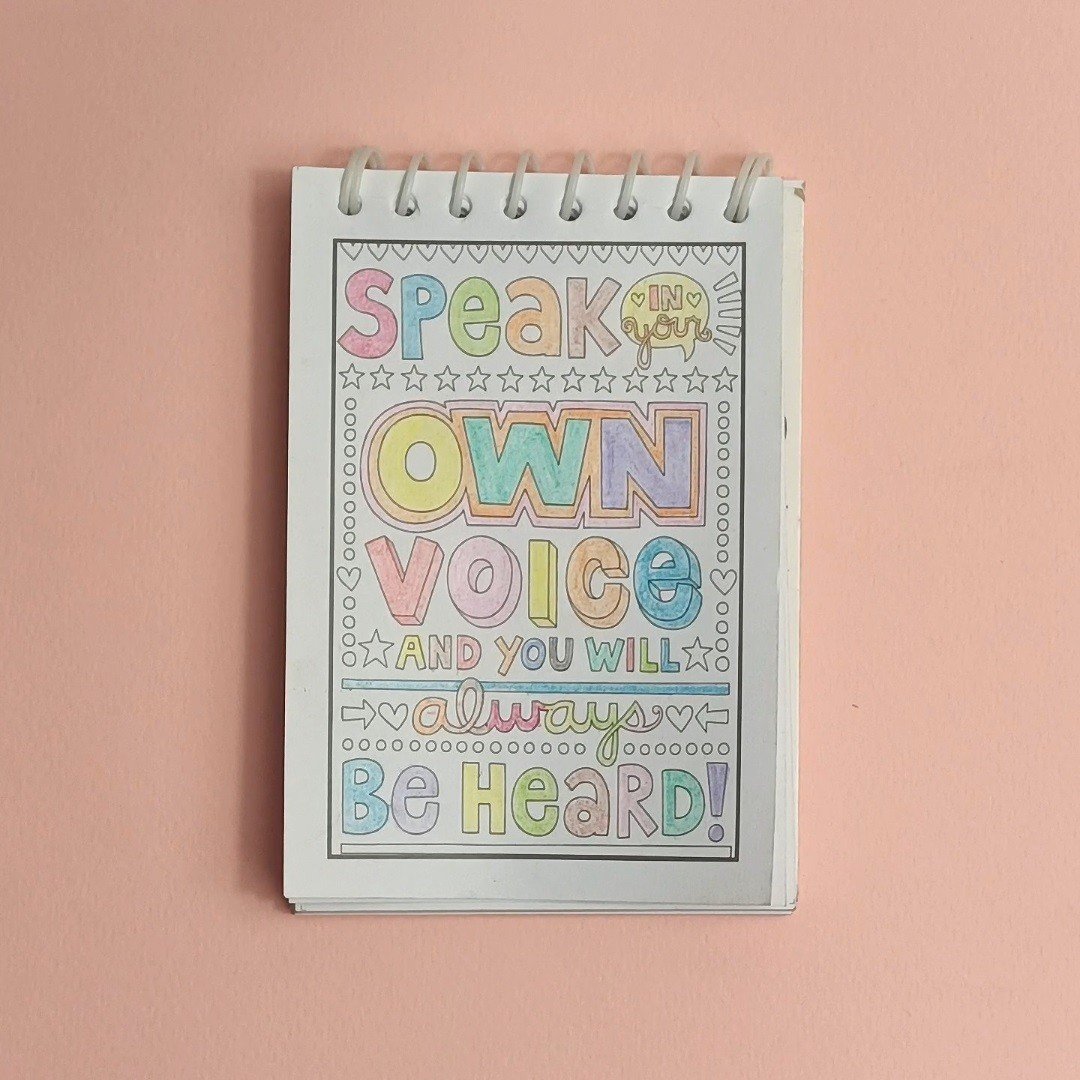 SPeaK IN your
OWN
VOICe
AND YOU WILL
always
Be HeaRD!